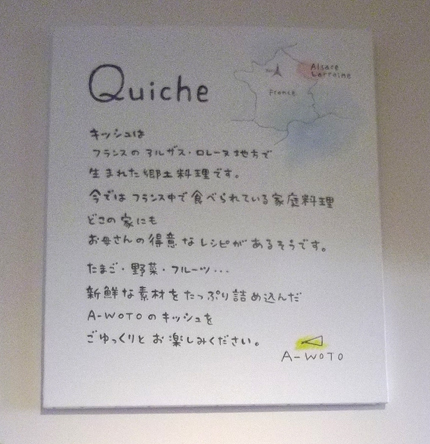 Quiche
Alsace
Lorraine
France
キッシュは
フランスのアルザス・ロレーヌ地方で
生まれた郷土料理です。
今ではフランス中で食べられている家庭料理
どこの家にも
お母さんの得意なレシピがあるそうです。
たまご・野菜・フルーツ・・・
新鮮な素材をたっぷり詰め込んだ
A-WOTOのキッシュを
ごゆっくりとお楽しみください。
A-WOTO